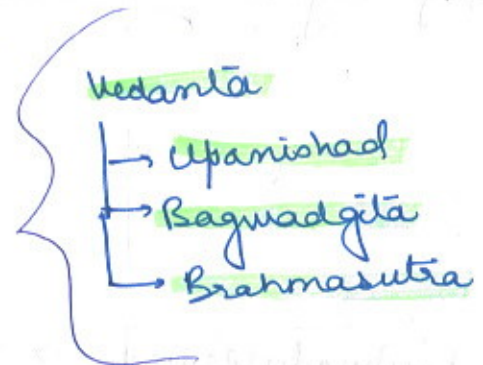 Vedantā
Upanishad
Bagwadgītā
Brahmasutra